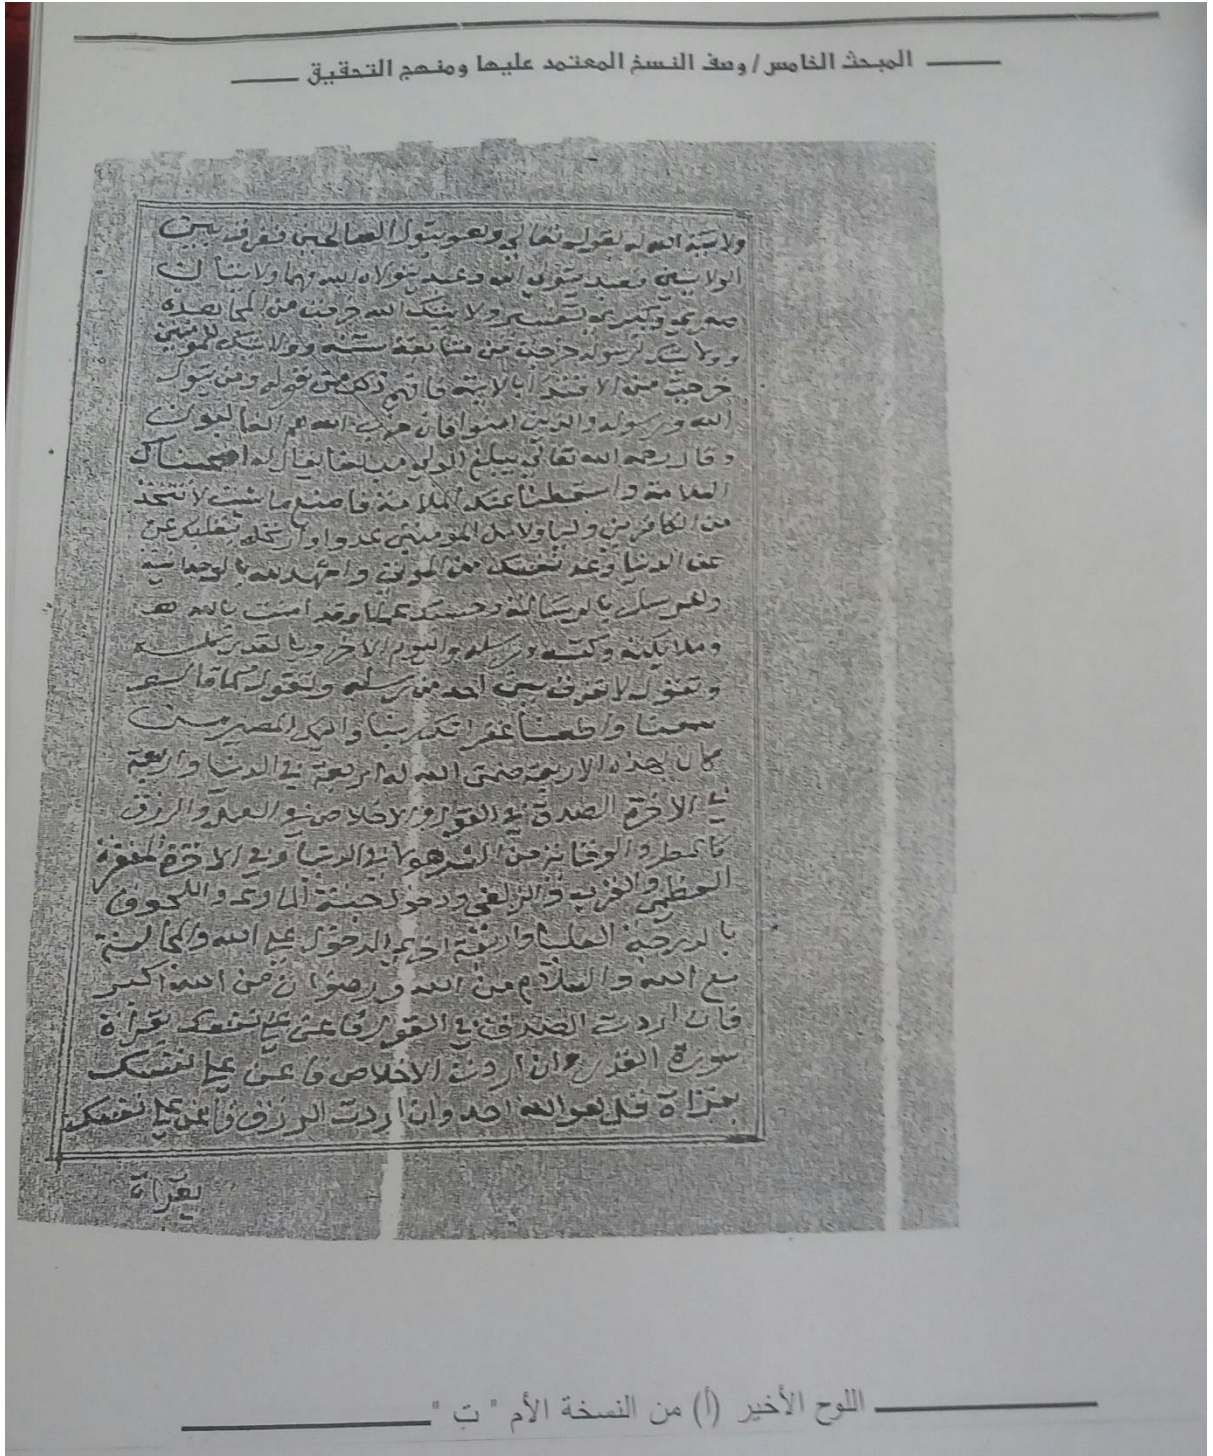 المبحث الخامس / وصف النسخ المعتمد عليها ومنهج التحقيق
ولاية الله له لقوله تعالي وهو يتولي الصالحين ففرق بين
الولايتين فعبد يتولي الله وعبد يتولاه الله فهما ولايتان
صغري وكبري ولايتك الله خرجت من المجاهدة
وولايتك لرسوله خرجت من متابعة سنته وولايتك للمومنين
خرجت من الاقتدا بالايمة فافهم ذلك من قوله ومن يتول
الله ورسوله والذين امنوا فان حزب الله هم الغالبون
وقال رحمه الله تعالي يبلغ الولي مبلغا يقال له اصحبناك
السلامة واسقطنا عنك الملامة فاصنع ما شيت لا تتخذ
من الكافرين وليا ولا من المومنين عدوا وارحل بقلبك عن
عن الدنيا وعد نفسك من الموتي واشهد لله بالوحدانية
ولرسوله بالرسالة وحسبك عملا وقد امنت بالله
وملايكته وكتبه ورسله واليوم الاخر وبالقدر كله
وتقول لا نفرق بين احد من رسله ونقول كما قالوا
سمعنا واطعنا غفرانك ربنا واليك المصير من
كان بهذه الاربعة ضمن الله له اربعة في الدنيا واربعة
في الاخرة الصدق في القول والاخلاص في العمل والرزق
كالمطر والوقاية من الشر هذا في الدنيا وفي الاخرة المغفرة
العظمي والقرب والزلفي ودخول جنة الماوي واللحوق
بالدرجة العليا واربعة اخري الدخول علي الله والمجالسة
مع الله والسلام من الله ورضوان من الله اكبر
فان اردت الصدق في القول فاعن علي نفسك بقراة
سورة القدر وان اردت الاخلاص فاعن علي نفسك
بقراة قل هو الله احد وان اردت الرزق فاعن علي نفسك
بقراة
اللوح الأخير (أ) من النسخة الأم " ت "